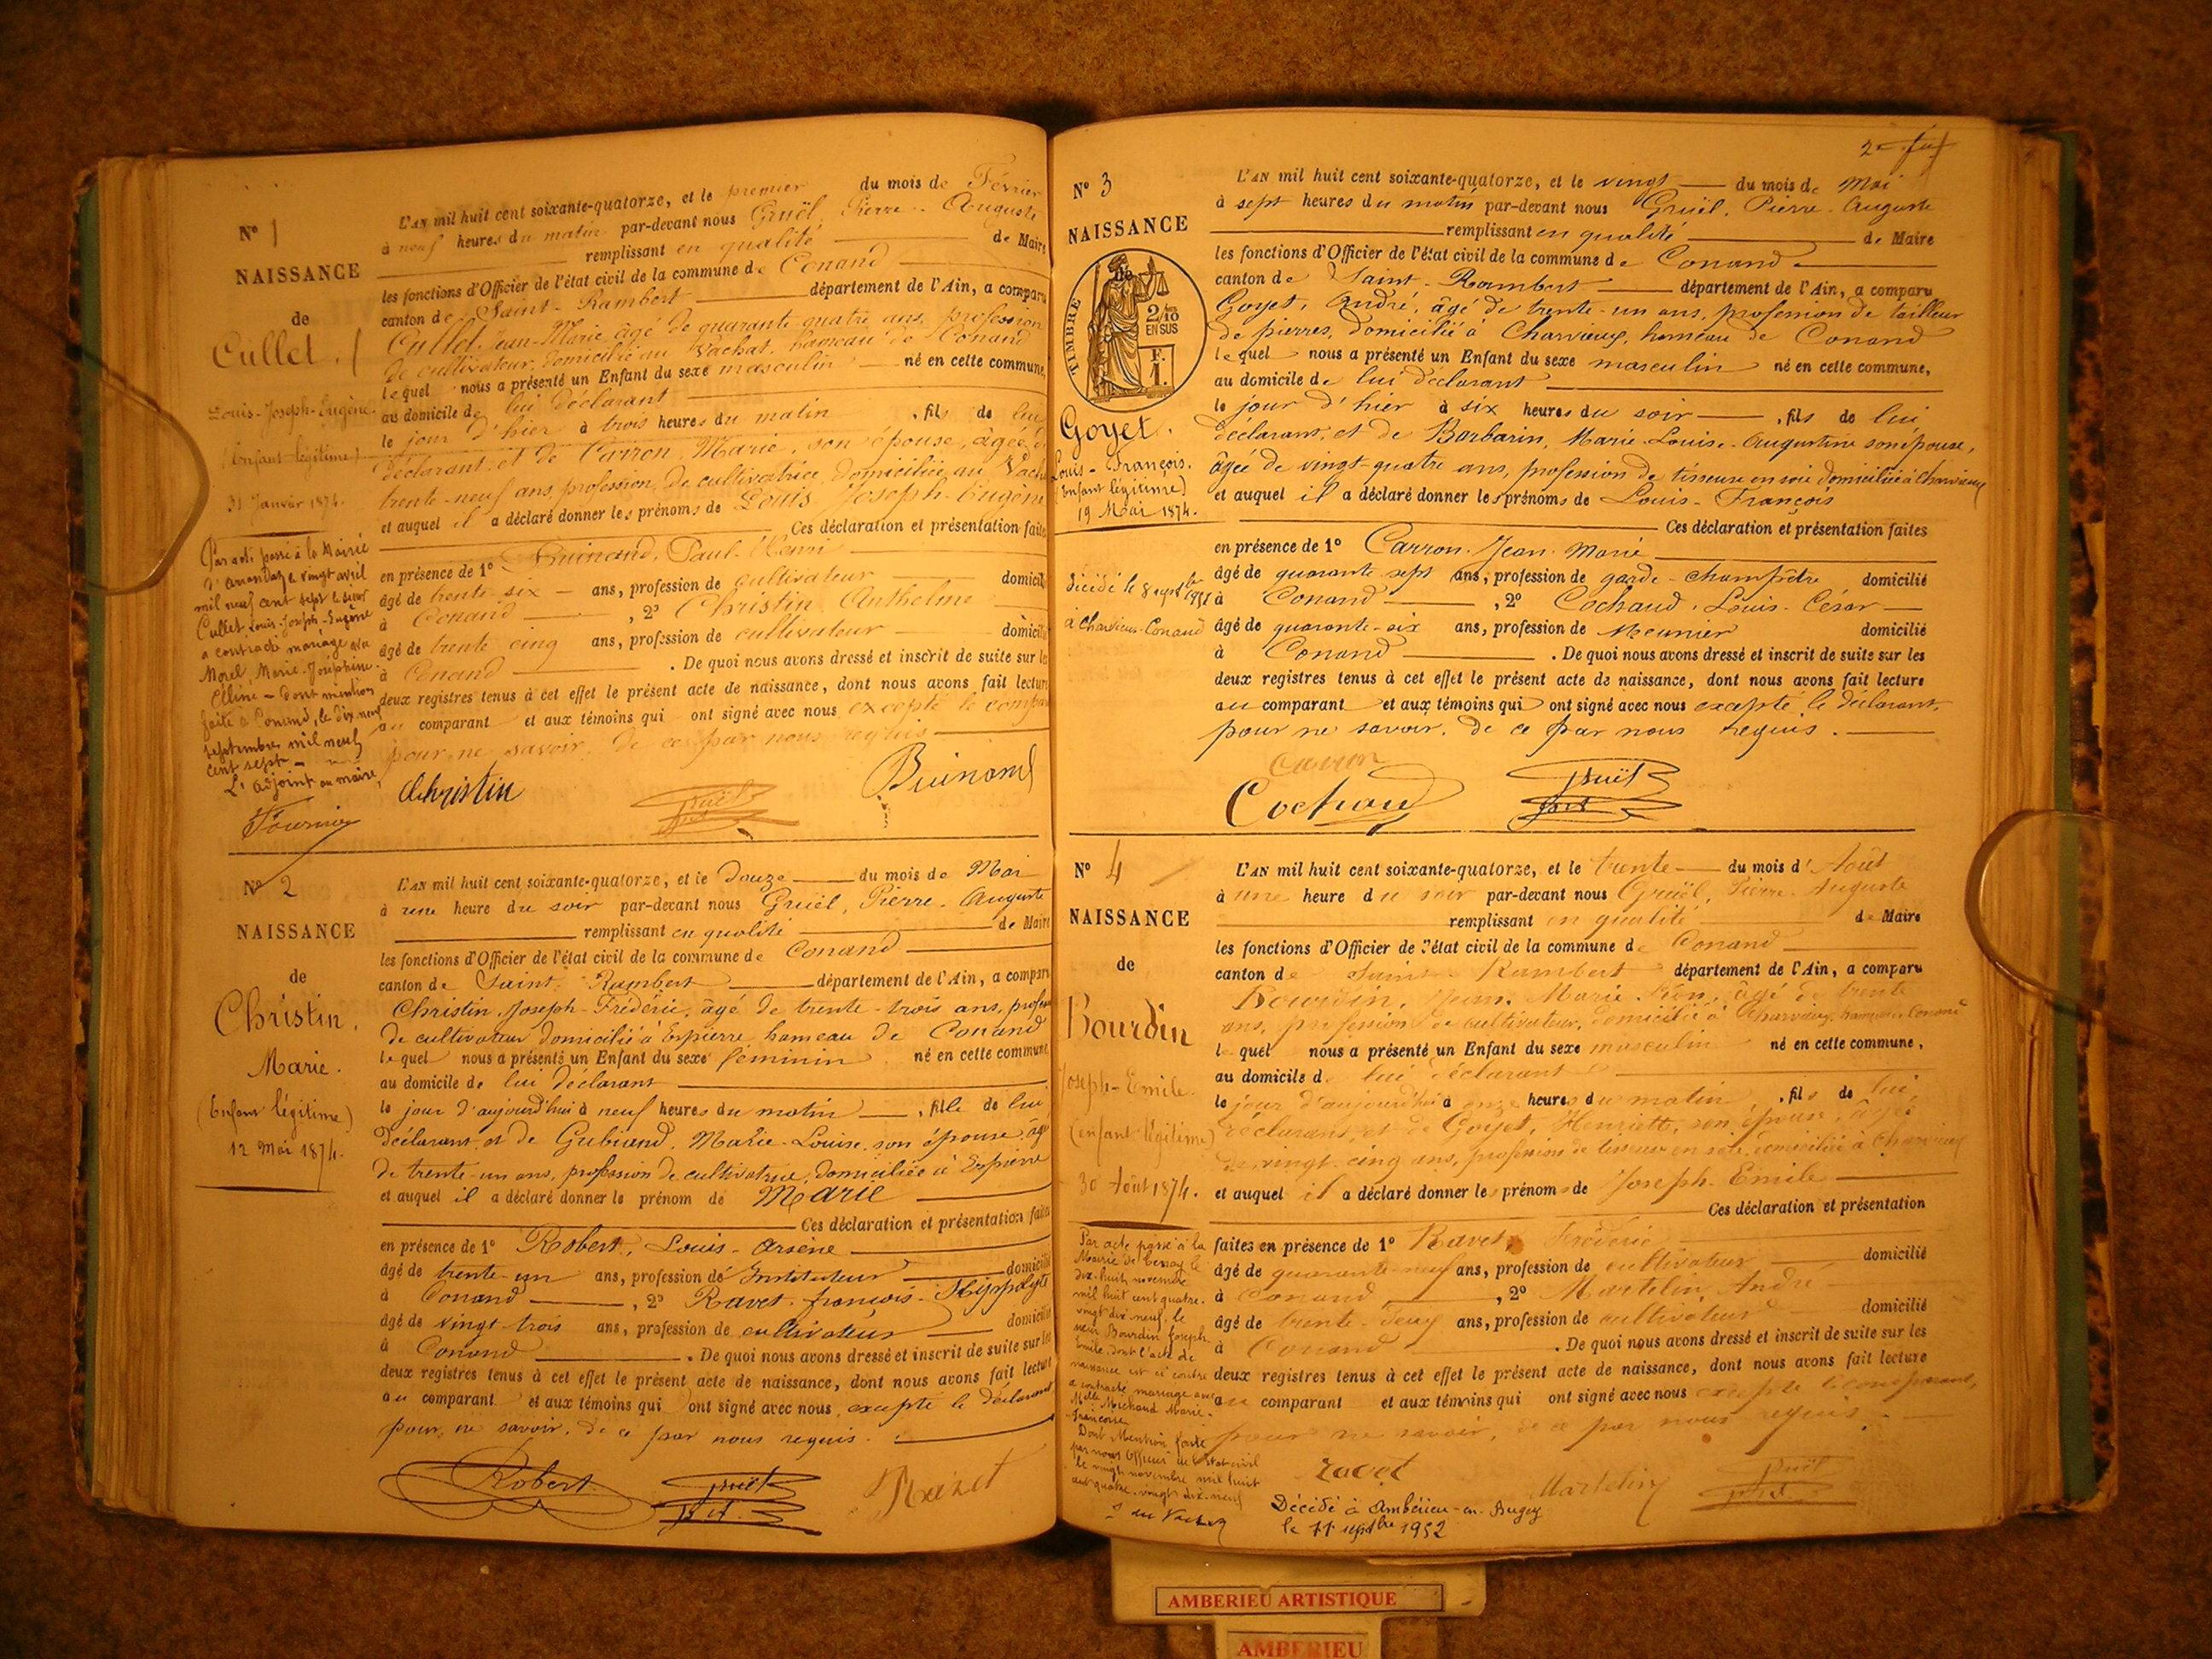 Nº 1
NAISSANCE
de
Cullet.
Louis-Joseph-Eugène.
(Enfant légitime)
31 Janvier 1874.
Par acte passé à la Mairie
vingt avril
mil neuf cent sept le sieur
Cullet Louis-Joseph-Eugène
a contracté mariage avec
Morel, Marie-Joséphine
dont mention
faite à Conand, le dix neuf
septembre mil neuf
cent sept
L'adjoint au maire,
Fournier
L'AN mil huit cent soixante-quatorze, et le premier du mois de Février
à neuf heures du matin par-devant nous Gruël, Pierre-Auguste
remplissant en qualité de Maire
les fonctions d'Officier de l'état civil de la commune de Conand
canton de Saint-Rambert département de l'Ain, a comparu
Cullet Jean-Marie, âgé de quarante quatre ans, profession
de cultivateur, domicilié au Vachat, hameau de Conand
lequel nous a présenté un Enfant du sexe masculin né en cette commune,
au domicile de lui déclarant
le jour d'hier à trois heures du matin, fils de lui
déclarant, et de Carron, Marie, son épouse, âgée de
trente-neuf ans, profession de cultivatrice, domiciliée au Vachat
et auquel il a déclaré donner les prénoms de Louis Joseph-Eugène
Ces déclaration et présentation faites
en présence de 1º Buinand, Paul-Henri
âgé de trente-six ans, profession de cultivateur domicilié
à Conand, 2º Christin Anthelme
âgé de trente cinq ans, profession de cultivateur domicilié
à Conand. De quoi nous avons dressé et inscrit de suite sur les
deux registres tenus à cet effet le présent acte de naissance, dont nous avons fait lecture
au comparant et aux témoins qui ont signé avec nous excepté le comparant
pour ne savoir, de ce par nous requis
Christin Gruël Buinand
Nº 2
NAISSANCE
de
Christin.
Marie.
(Enfant légitime)
12 Mai 1874.
L'AN mil huit cent soixante-quatorze, et le douze du mois de Mai
à une heure du soir par-devant nous Gruël, Pierre-Auguste
remplissant en qualité de Maire
les fonctions d'Officier de l'état civil de la commune de Conand
canton de Saint-Rambert département de l'Ain, a comparu
Christin, Joseph-Frédéric, âgé de trente-trois ans, profession
de cultivateur domicilié à Espierre, hameau de Conand
lequel nous a présenté un Enfant du sexe féminin né en cette commune
au domicile de lui déclarant
le jour d'aujourd'hui à neuf heures du matin, fille de lui
déclarant, et de Gubiand, Marie-Louise, son épouse, âgée
de trente-un ans, profession de cultivatrice, domiciliée à Espierre
et auquel il a déclaré donner le prénom de Marie
Ces déclaration et présentation faites
en présence de 1º Robert, Louis-Arsène
âgé de trente-un ans, profession de Instituteur domicilié
à Conand, 2º Ravet, François-Hippolyte
âgé de vingt-trois ans, profession de cultivateur domicilié
à Conand. De quoi nous avons dressé et inscrit de suite sur les
deux registres tenus à cet effet le présent acte de naissance, dont nous avons fait lecture
au comparant et aux témoins qui ont signé avec nous, excepté le déclarant
pour ne savoir, de ce par nous requis.
Robert Gruël
2e
Nº 3
NAISSANCE
de
TIMBRE
2/10
EN SUS
F.
1.
Goyet.
Louis-François.
(Enfant légitime)
19 Mai 1874.
Décédé le 8 septbre
à Charvieux-Conand
L'AN mil huit cent soixante-quatorze, et le vingt du mois de Mai
à sept heures du matin par-devant nous Gruël, Pierre-Auguste
remplissant en qualité de Maire
les fonctions d'Officier de l'état civil de la commune de Conand
canton de Saint-Rambert département de l'Ain, a comparu
Goyet, André, âgé de trente-un ans, profession de tailleur
de pierres, domicilié à Charvieux, hameau de Conand
lequel nous a présenté un Enfant du sexe masculin né en cette commune,
au domicile de lui déclarant
le jour d'hier à six heures du soir, fils de lui
déclarant, et de Barbarin, Marie-Louise-Augustine son épouse,
âgée de vingt-quatre ans, profession de tisseuse en soie domiciliée à Charvieux
et auquel il a déclaré donner les prénoms de Louis-François
Ces déclaration et présentation faites
en présence de 1º Carron Jean-Marie
âgé de quarante sept ans, profession de garde-champêtre domicilié
à Conand, 2º Cochaud, Louis-César
âgé de quarante-six ans, profession de Meunier domicilié
à Conand. De quoi nous avons dressé et inscrit de suite sur les
deux registres tenus à cet effet le présent acte de naissance, dont nous avons fait lecture
au comparant et aux témoins qui ont signé avec nous excepté le déclarant,
pour ne savoir, de ce par nous requis.
Carron
Cochaud Gruël
Nº 4
NAISSANCE
de
Bourdin
Joseph-Emile.
(enfant légitime)
30 Août 1874.
Par acte passé à la
Mairie de Tenay le
dix-huit novembre
mil huit cent quatre-
vingt dix-neuf, le
sieur Bourdin Joseph
Emile, dont l'acte de
naissance est ci contre
a contracté mariage avec
Melle Michaud Marie-
Françoise
Dont Mention faite
par nous Officier de l'état civil
le vingt novembre mil huit
cent quatre-vingt dix-neuf
L'AN mil huit cent soixante-quatorze, et le trente du mois d'Août
à une heure du soir par-devant nous Gruël, Pierre-Auguste
remplissant en qualité de Maire
les fonctions d'Officier de l'état civil de la commune de Conand
canton de Saint-Rambert département de l'Ain, a comparu
Bourdin, Jean-Marie âgé de trente
ans, profession de cultivateur, domicilié à Charvieux, hameau de Conand
lequel nous a présenté un Enfant du sexe masculin né en cette commune,
au domicile de lui déclarant
le jour d'aujourd'hui à onze heures du matin, fils de lui,
déclarant, et de Goyet, Henriette, son épouse, âgée
de vingt-cinq ans, profession de tisseuse en soie, domiciliée à Charvieux
et auquel il a déclaré donner les prénoms de Joseph-Emile
Ces déclaration et présentation
faites en présence de 1º Ravet, Frédéric
âgé de quarante-neuf ans, profession de cultivateur domicilié
à Conand, 2º Martelin, André
âgé de trente-deux ans, profession de cultivateur domicilié
à Conand. De quoi nous avons dressé et inscrit de suite sur les
deux registres tenus à cet effet le présent acte de naissance, dont nous avons fait lecture
au comparant et aux témoins qui ont signé avec nous excepté le comparant,
pour ne savoir, de ce par nous requis.
Ravet Martelin Gruël
Décédé à Ambérieu-en-Bugey
le 11 septbre 1952
AMBERIEU ARTISTIQUE
AMBERIEU